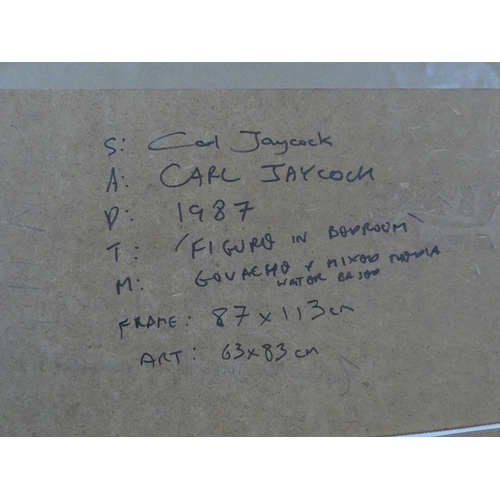 S: Carl Jaycock
A: CARL JAYCOCK
D: 1987
T: 'FIGURE IN BEDROOM'
M: GOUACHE + MIXED MEDIA
WATER BASED
FRAME: 87 x 113 cm
ART: 63 x 83 cm